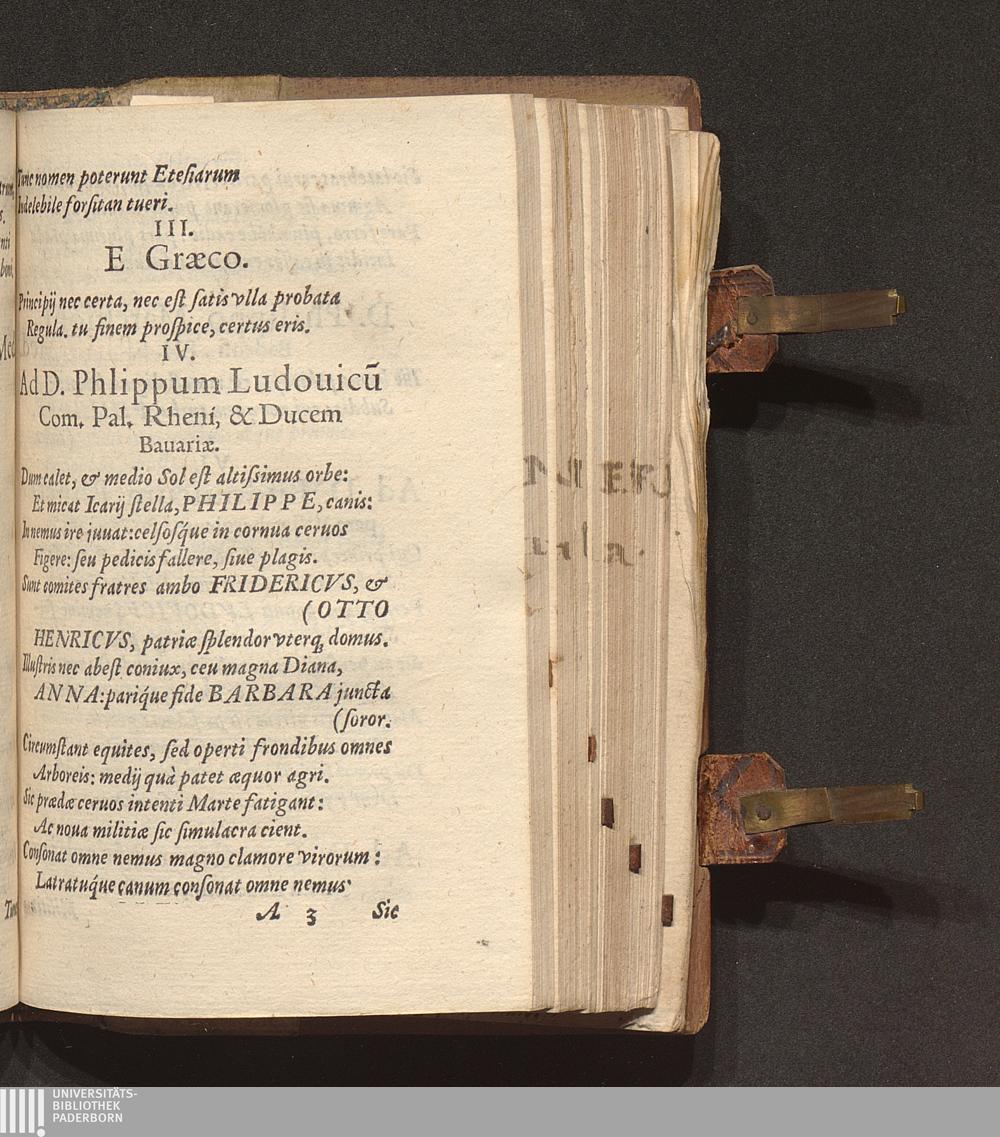 Tunc nomen poterunt Eteſiarum
Indelebile forſitan tueri.
III.
E Græco.
Principij nec certa, nec eſt ſatis vlla probata
Regula. tu finem proſpice, certus eris.
IV.
Ad D. Phlippum Ludouicū
Com. Pal. Rheni, & Ducem
Bauariæ.
Dum calet, & medio Sol eſt altiſsimus orbe:
Et micat Icarij ſtella, PHILIPPE, canis:
In nemus ire juuat: celſoſq́ue in cornua ceruos
Figere: ſeu pedicis fallere, ſiue plagis.
Sunt comites fratres ambo FRIDERICVS, &
(OTTO
HENRICVS, patriæ ſplendor vterq; domus.
Illuſtris nec abeſt coniux, ceu magna Diana,
ANNA: pariq́ue fide BARBARA juncta
(ſoror.
Circumſtant equites, ſed operti frondibus omnes
Arboreis: medij quà patet æquor agri.
Sic prædæ ceruos intenti Marte fatigant:
Ac noua militiæ ſic ſimulacra cient.
Conſonat omne nemus magno clamore virorum:
Latratuq́ue canum conſonat omne nemus
A 3 Sic
UNIVERSITÄTS-
BIBLIOTHEK
PADERBORN